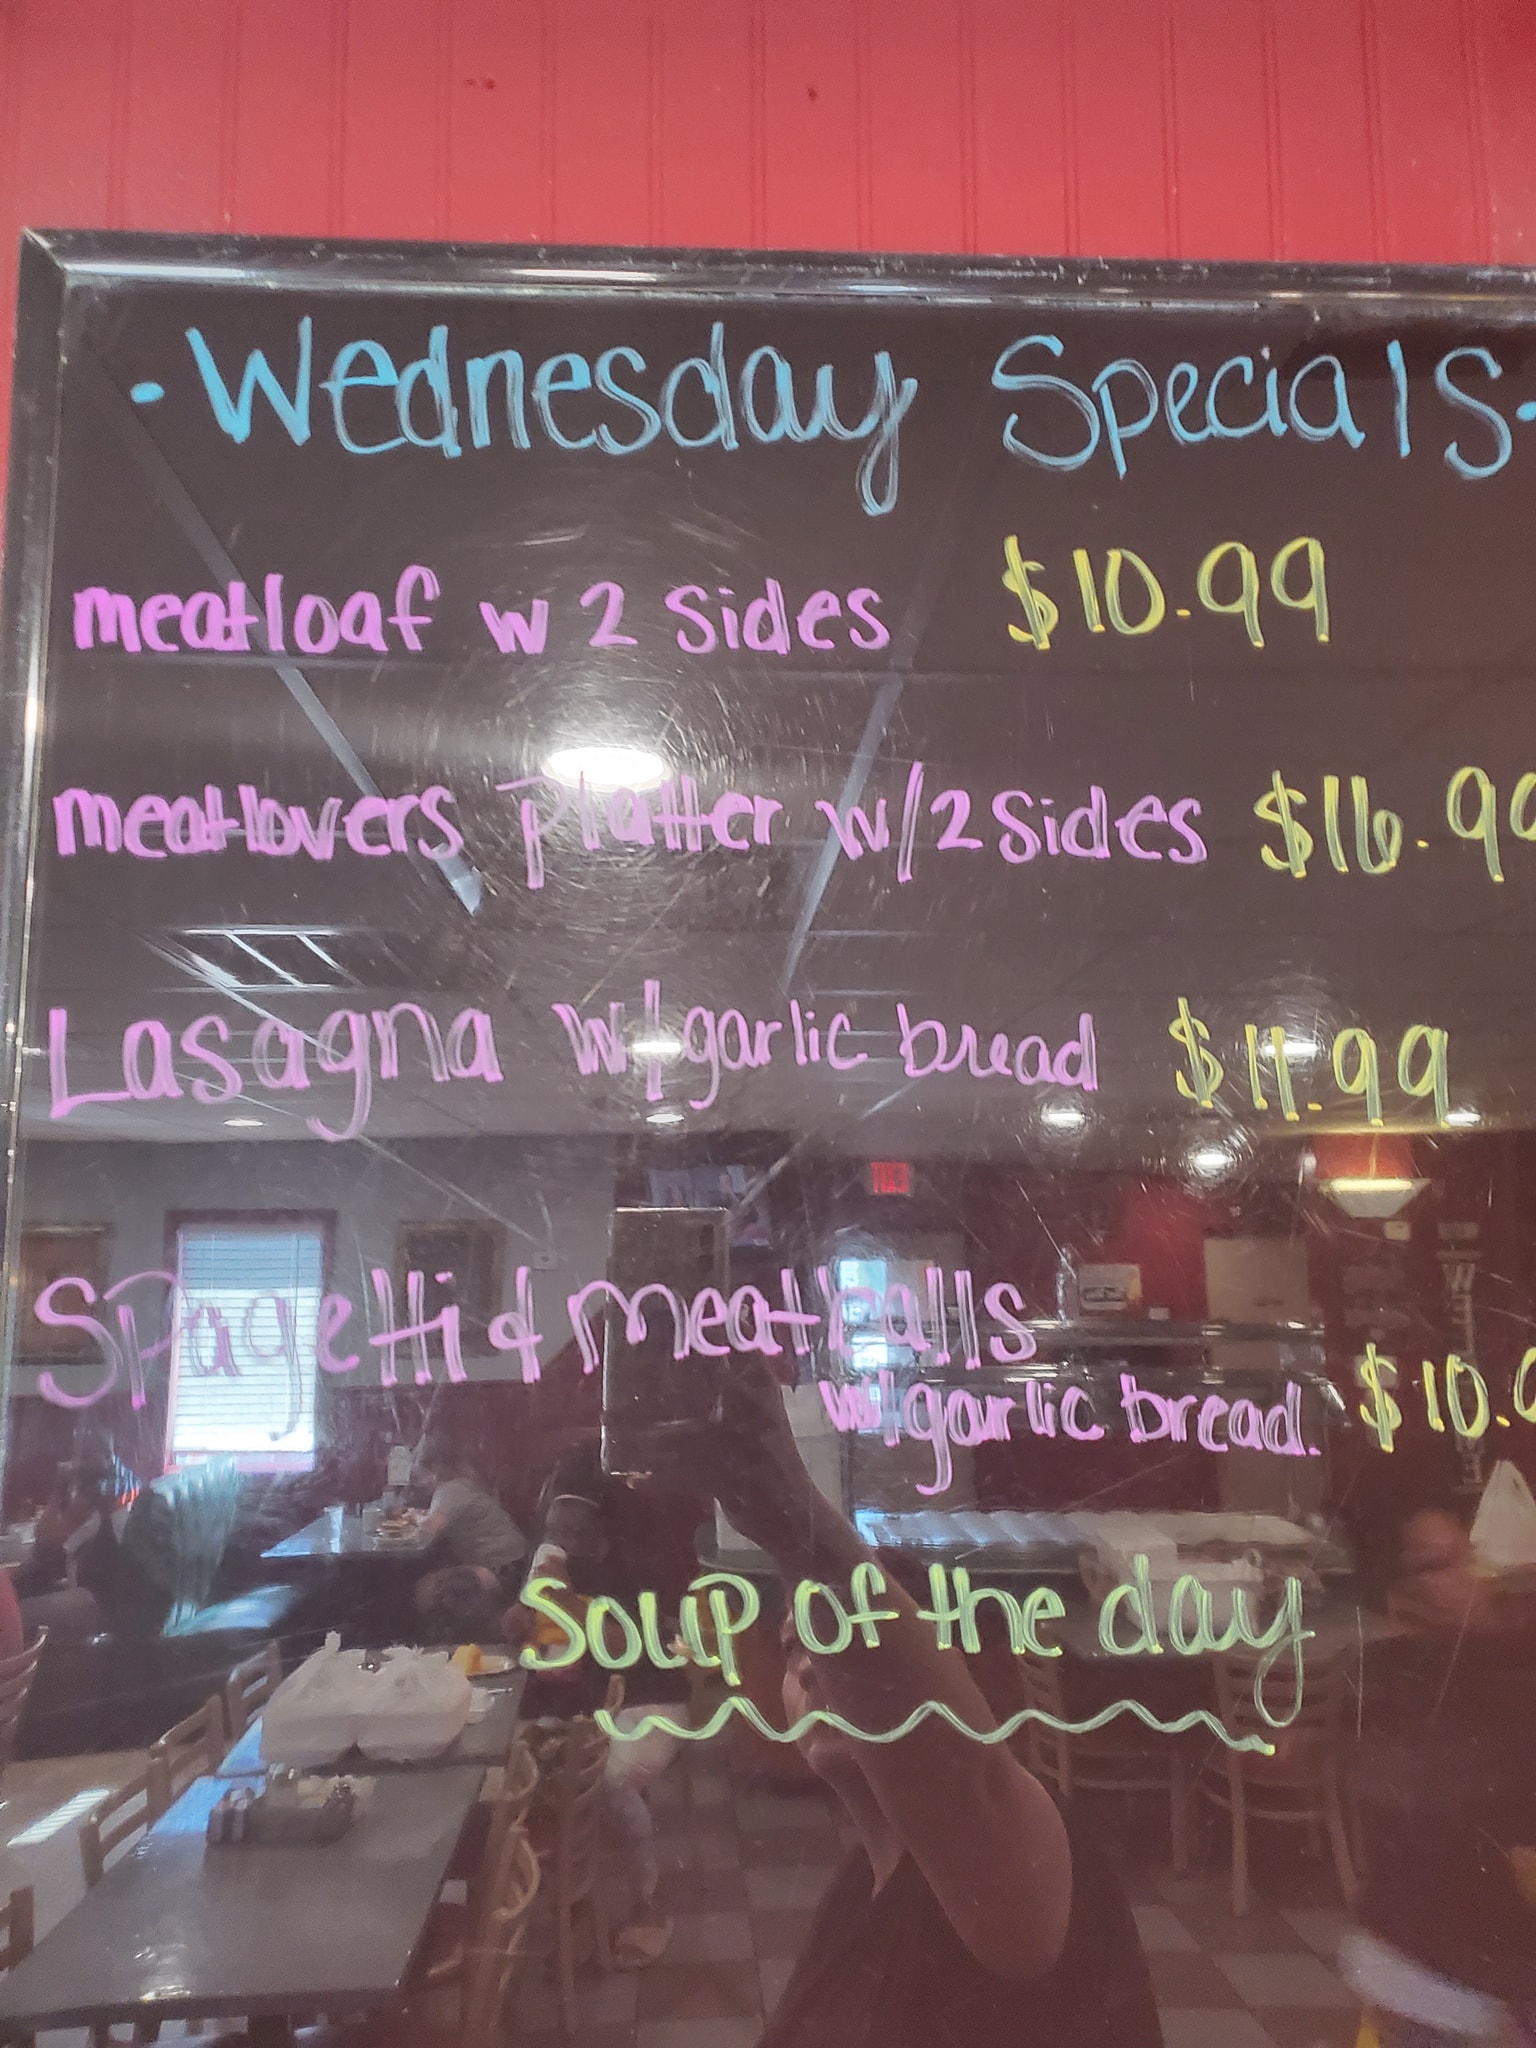 · Wednesday Specials ·
meatloaf w 2 sides $10.99
meatlovers platter w/2 sides $16.99
Lasagna w/garlic bread $11.99
Spagetti & meatballs
w/garlic bread. $10.9
Soup of the day
EXIT